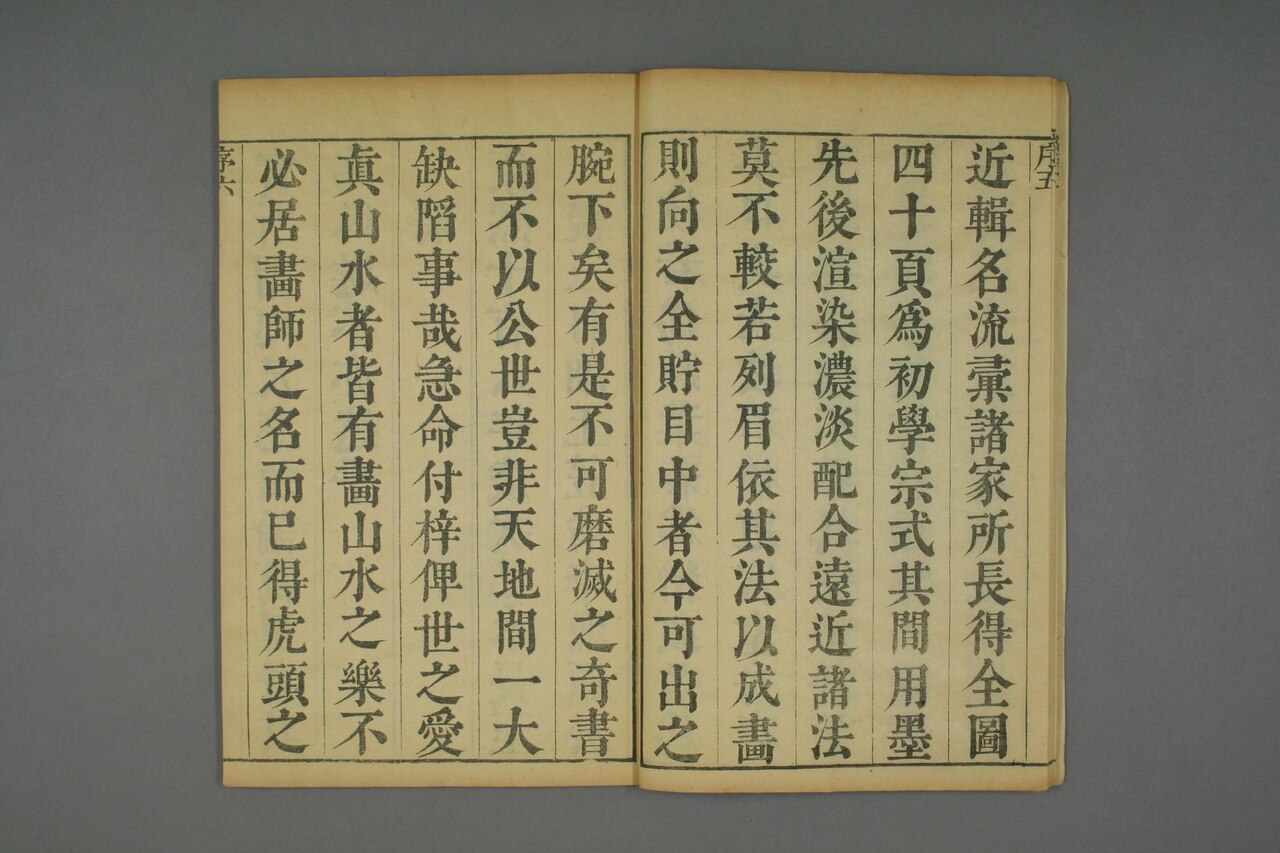 序五
近輯名流彚諸家所長得全圖
四十頁爲初學宗式其間用墨
先後渲染濃淡配合遠近諸法
莫不較若列眉依其法以成畫
則向之全貯目中者今可出之
腕下矣有是不可磨滅之奇書
而不以公世豈非天地間一大
缺䧟事哉急命付梓俾世之愛
眞山水者皆有畫山水之樂不
必居畫師之名而已得虎頭之
序六